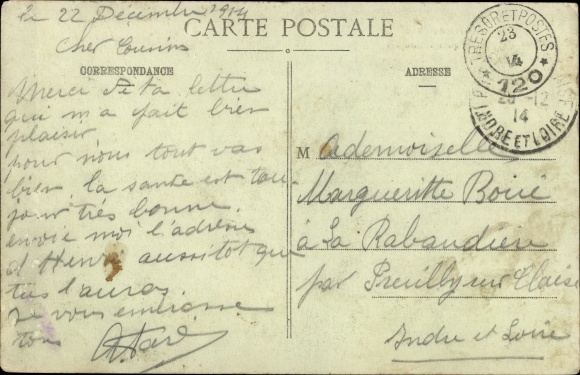 le 22 Décembre 1914
CARTE POSTALE
Cher Cousins
CORRESPONDANCE
Merci de ta lettre
qui m a fait bien
plaisir
pour nous tout vas
bien. la sante est tou
jour très bonne.
envoie moi l'adresse
d Henri aussitot que
tus l'auras.
Je vous embrasse
tous
ADRESSE
M ademoiselle
Margueritte Boué
à La Rabaudière
par Preuilly sur Claise
Indre et Loire
TRESOR ET POSTES
23
14
* 120 *
12
14
INDRE ET LOIRE